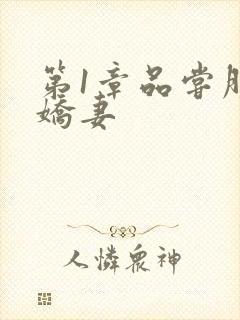 第1章品尝
娇妻
人憐眾神